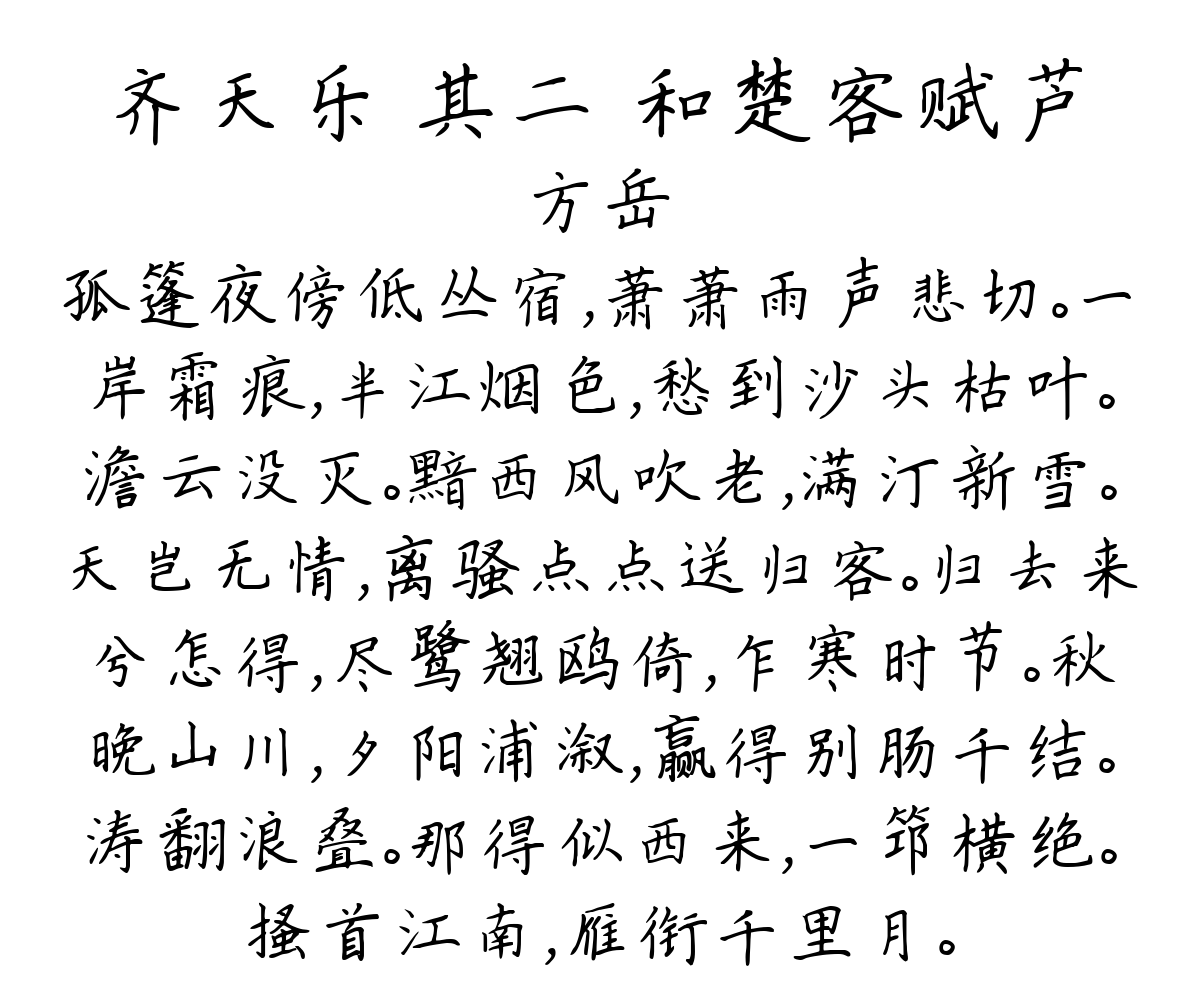 齐天乐 其二 和楚客赋芦
方岳
孤篷夜傍低丛宿,萧萧雨声悲切。一
岸霜痕,半江烟色,愁到沙头枯叶。
澹云没灭。黯西风吹老,满汀新雪。
天岂无情,离骚点点送归客。归去来
兮怎得,尽鹭翘鸥倚,乍寒时节。秋
晚山川,夕阳浦溆,赢得别肠千结。
涛翻浪叠。那得似西来,一筇横绝。
搔首江南,雁衔千里月。